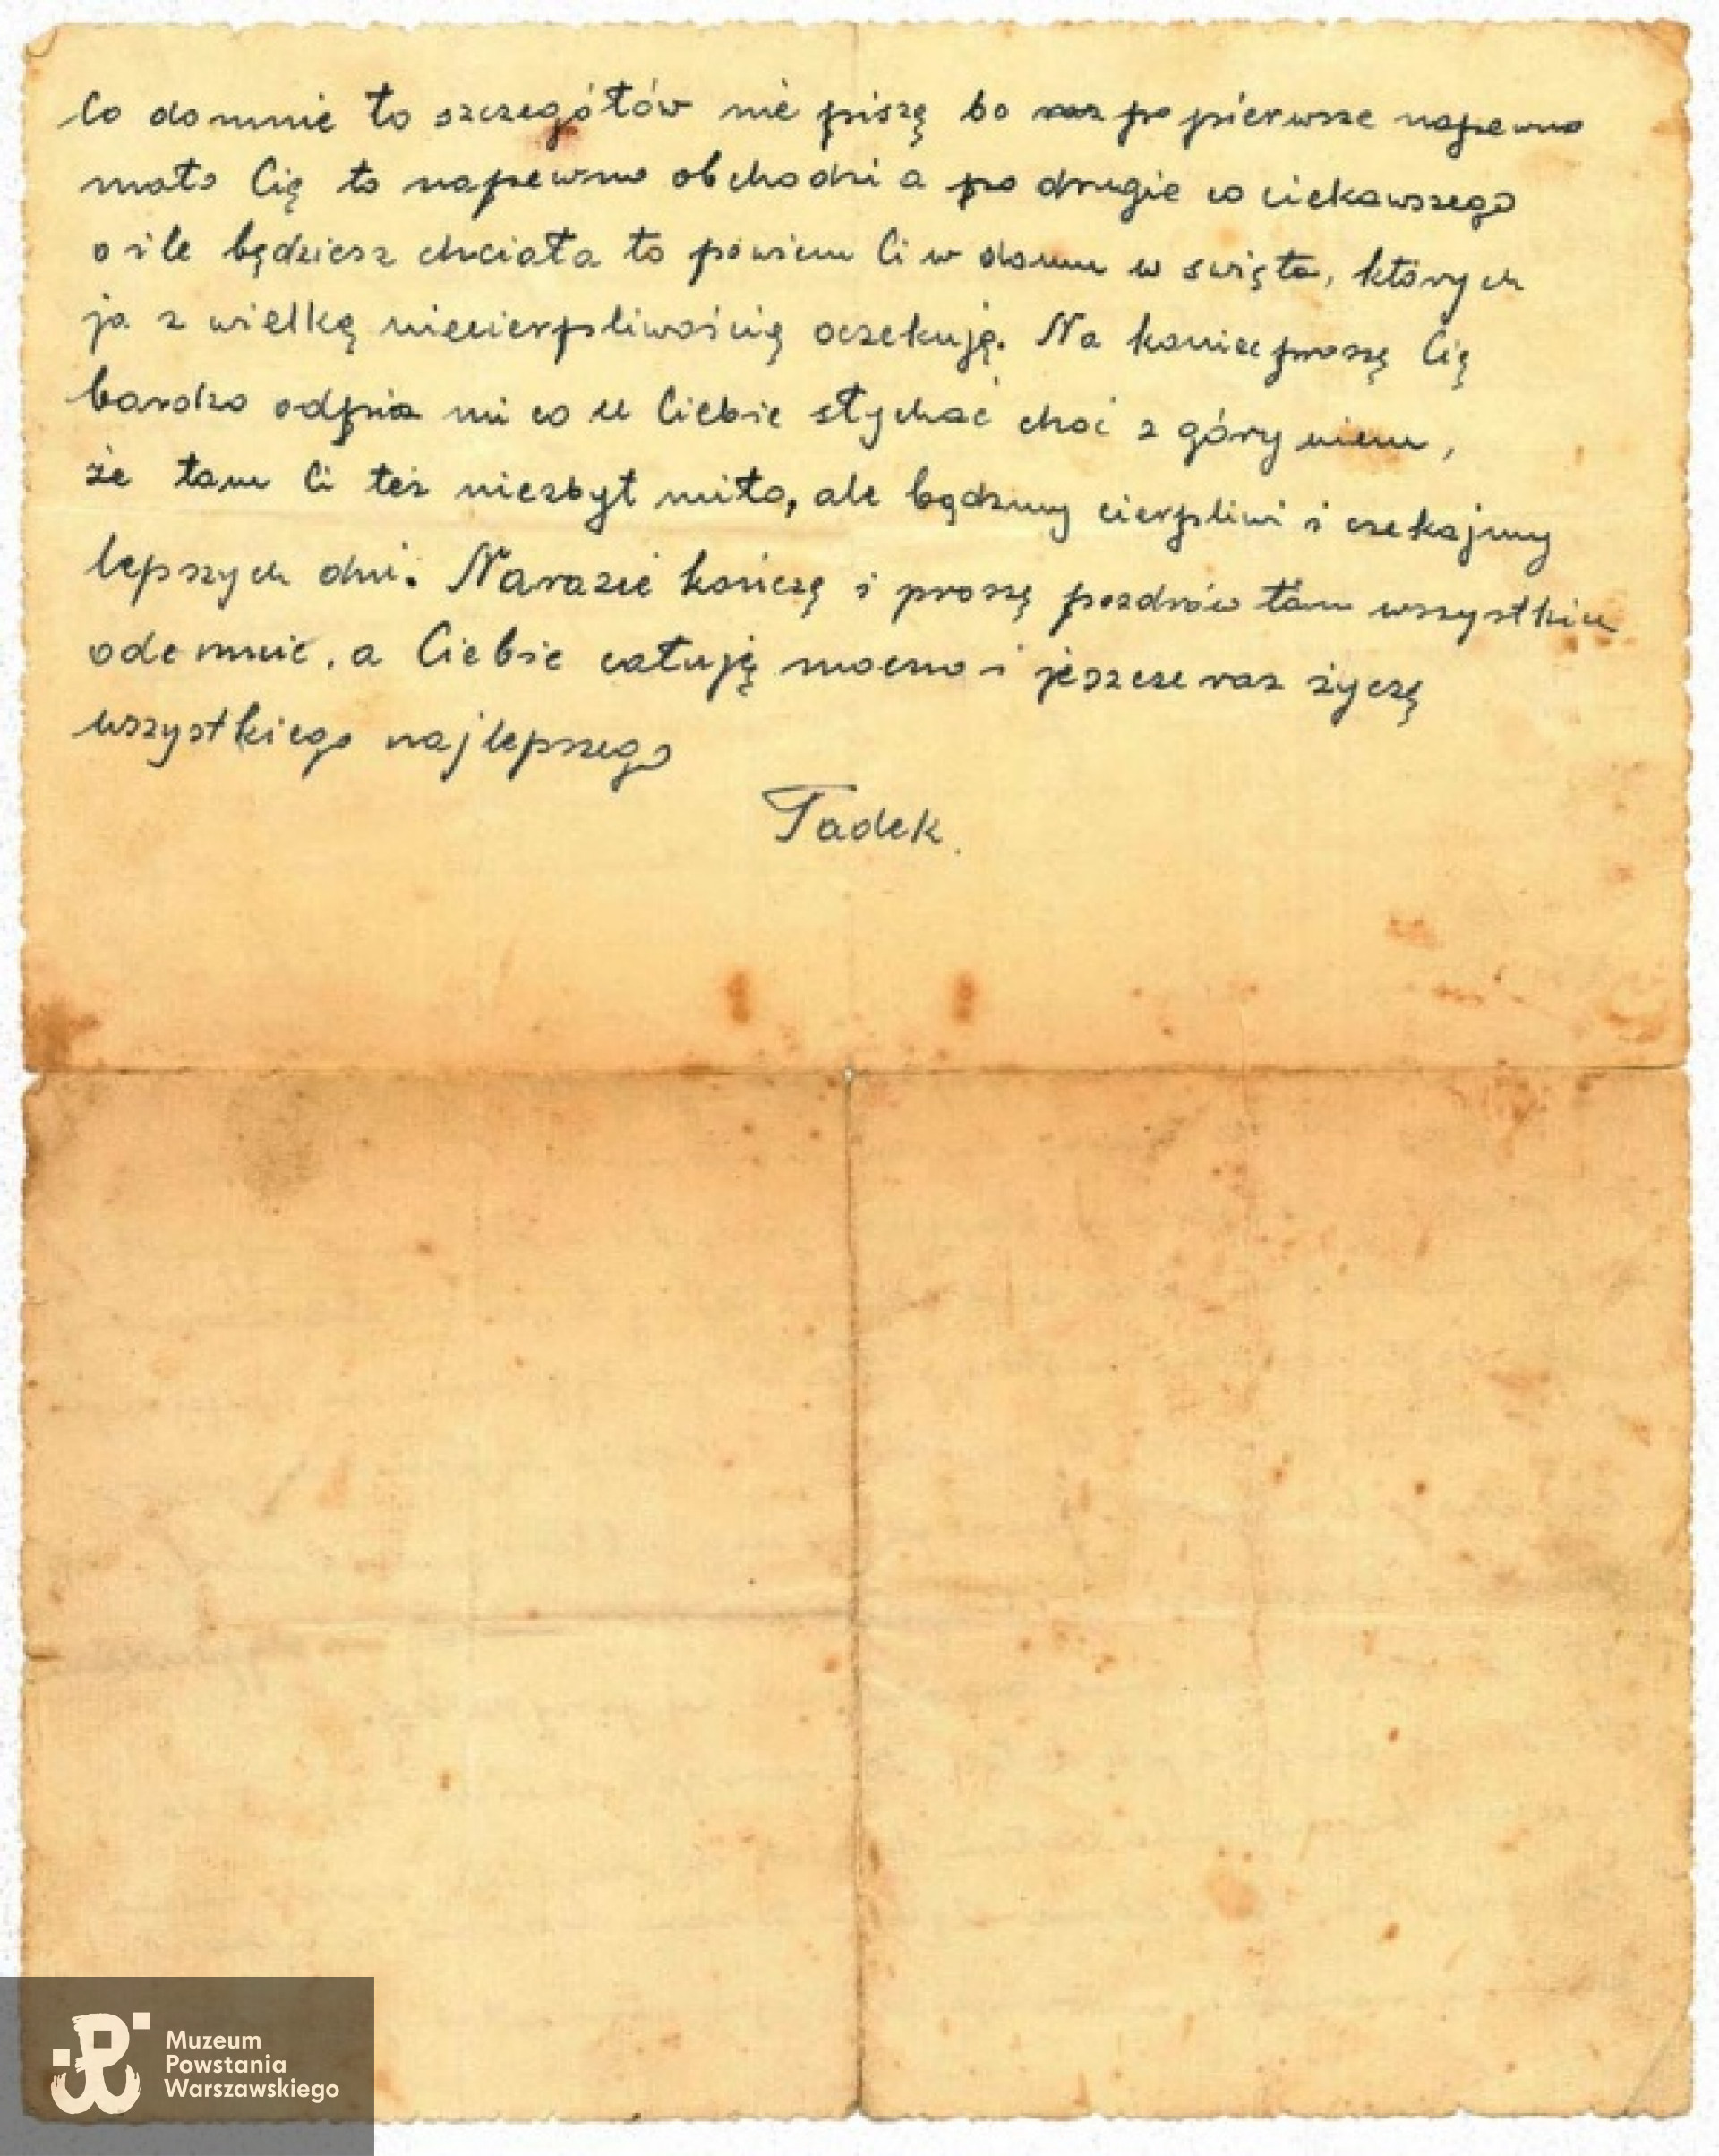 Co domnie to szczegółów nie piszę bo raz po pierwsze napewno
mało Cię to napewno obchodzi a po drugie co ciekawszego
o ile będziesz chciała to powiem Ci w domu w święta, których
ja z wielką niecierpliwością oczekuję. Na koniec proszę Cię
bardzo odpisz mi co u Ciebie słychać choć z góry wiem,
że tam Ci też niezbyt miło, ale bądźmy cierpliwi i czekajmy
lepszych dni. Narazie kończę i proszę pozdrów tam wszystkich
odemnie, a Ciebie całuję mocno i jeszcze raz życzę
wszystkiego najlepszego
Tadek.
Muzeum
Powstania
Warszawskiego